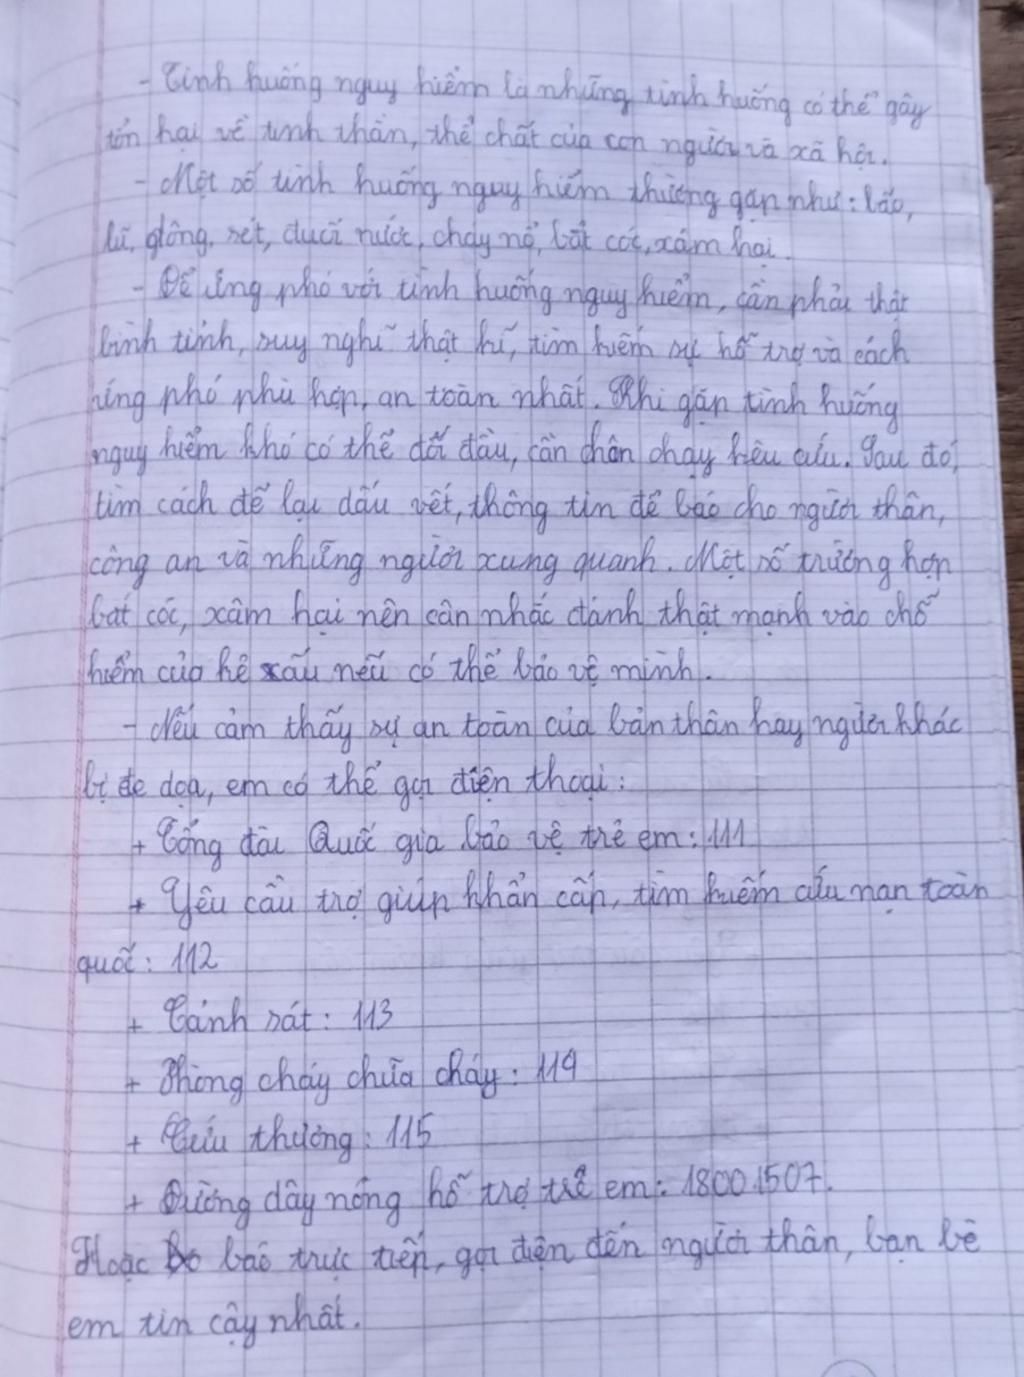 - Tình huống nguy hiểm là những tình huống có thể gây
tổn hại về tinh thần, thể chất của con người và xã hội.
- Một số tình huống nguy hiểm thường gặp như: bão,
lũ, giông, sét, đuối nước, cháy nổ, bắt cóc, xâm hại.
- Để ứng phó với tình huống nguy hiểm, cần phải thật
bình tĩnh, suy nghĩ thật kĩ, tìm kiếm sự hỗ trợ và cách
ứng phó phù hợp, an toàn nhất. Khi gặp tình huống
nguy hiểm khó có thể đối đầu, cần chạy kêu cứu. Sau đó,
tìm cách để lại dấu vết, thông tin để báo cho người thân,
công an và những người xung quanh. Một số trường hợp
bắt cóc, xâm hại nên cân nhắc đánh thật mạnh vào chỗ
hiểm của kẻ xấu nếu có thể bảo vệ mình.
- Nếu cảm thấy sự an toàn của bản thân hay người khác
bị đe dọa, em có thể gọi điện thoại:
+ Tổng đài Quốc gia bảo vệ trẻ em: 111
+ Yêu cầu trợ giúp khẩn cấp, tìm kiếm cứu nạn toàn
quốc: 112
+ Cảnh sát: 113
+ Phòng cháy chữa cháy: 114
+ Cứu thương: 115
+ Đường dây nóng hỗ trợ trẻ em: 18001507.
Hoặc báo trực tiếp, gọi điện đến người thân, bạn bè
em tin cậy nhất.